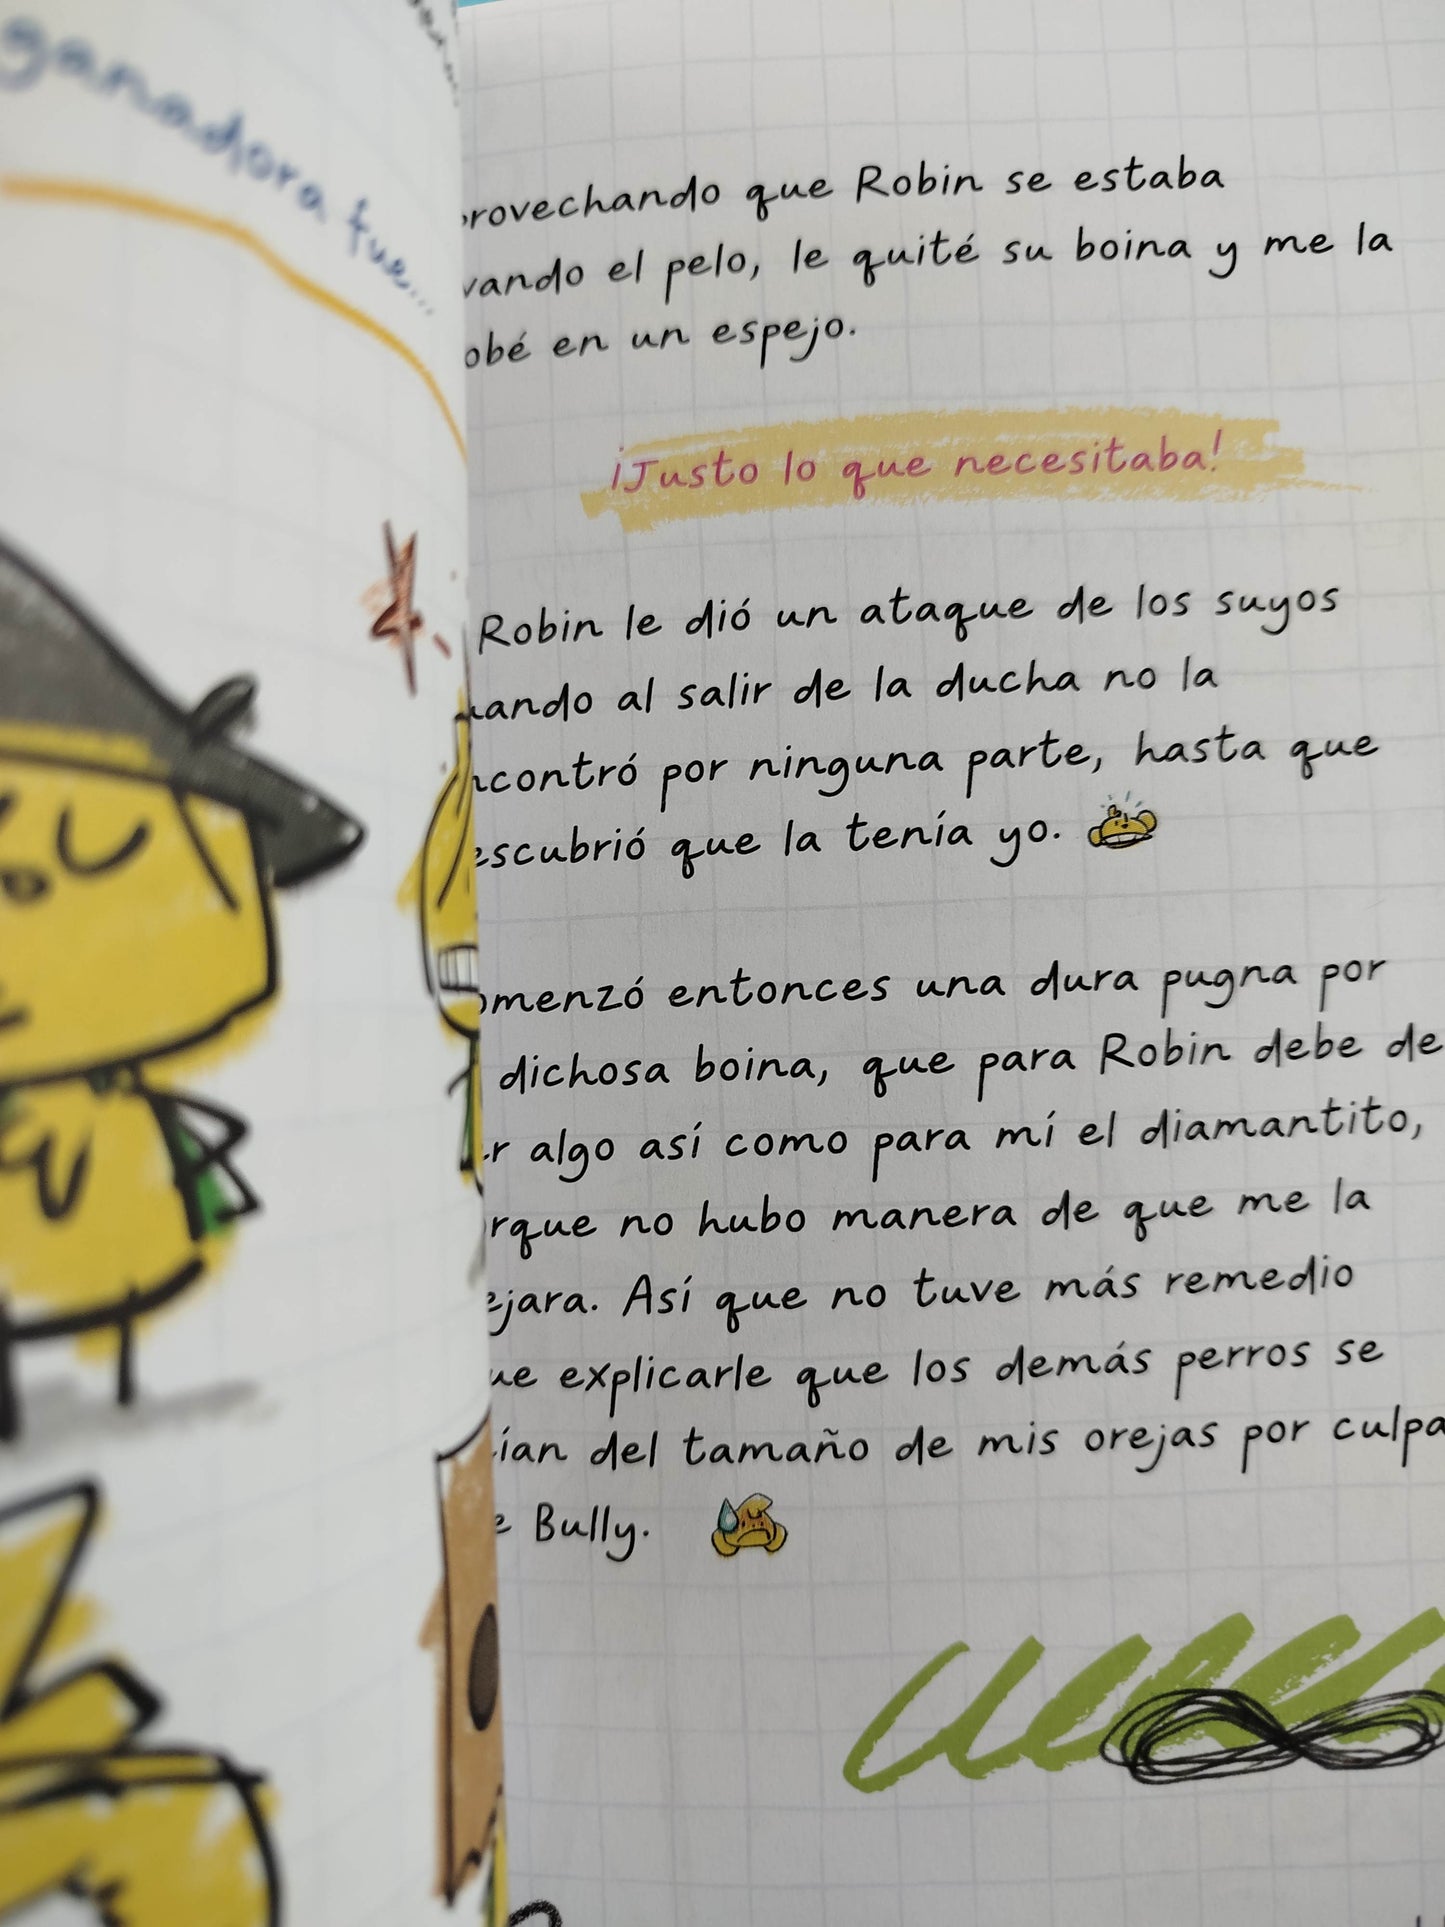 ganadora fue...
rovechando que Robin se estaba
vando el pelo, le quité su boina y me la
obé en un espejo.
¡Justo lo que necesitaba!
Robin le dió un ataque de los suyos
uando al salir de la ducha no la
ncontró por ninguna parte, hasta que
escubrió que la tenía yo.
omenzó entonces una dura pugna por
dichosa boina, que para Robin debe de
r algo así como para mí el diamantito,
rque no hubo manera de que me la
ejara. Así que no tuve más remedio
ue explicarle que los demás perros se
ían del tamaño de mis orejas por culpa
e Bully.